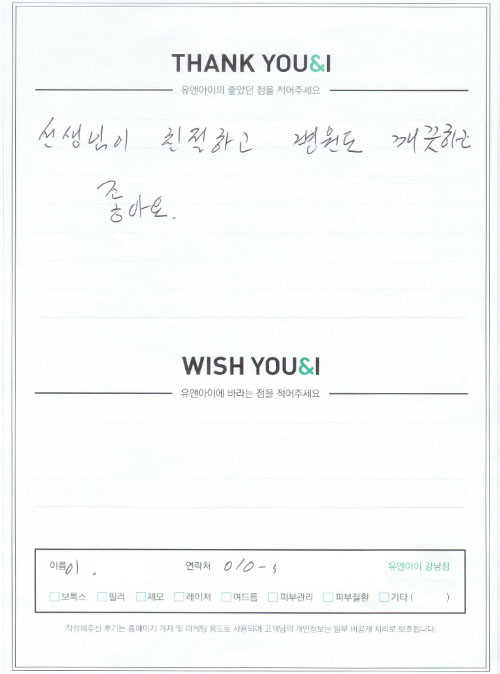 THANK YOU&I
유앤아이의 좋았던 점을 적어주세요
선생님이 친절하고 병원도 깨끗하고
좋아요.
WISH YOU&I
유앤아이에 바라는 점을 적어주세요
이름 이 . 연락처 010-5 유앤아이 강남점
보톡스 필러 제모 레이저 여드름 피부관리 피부질환 기타 ( )
작성해주신 후기는 홈페이지 게재 및 마케팅 용도로 사용되며 고객님의 개인정보는 일부 비공개 처리로 보호됩니다.